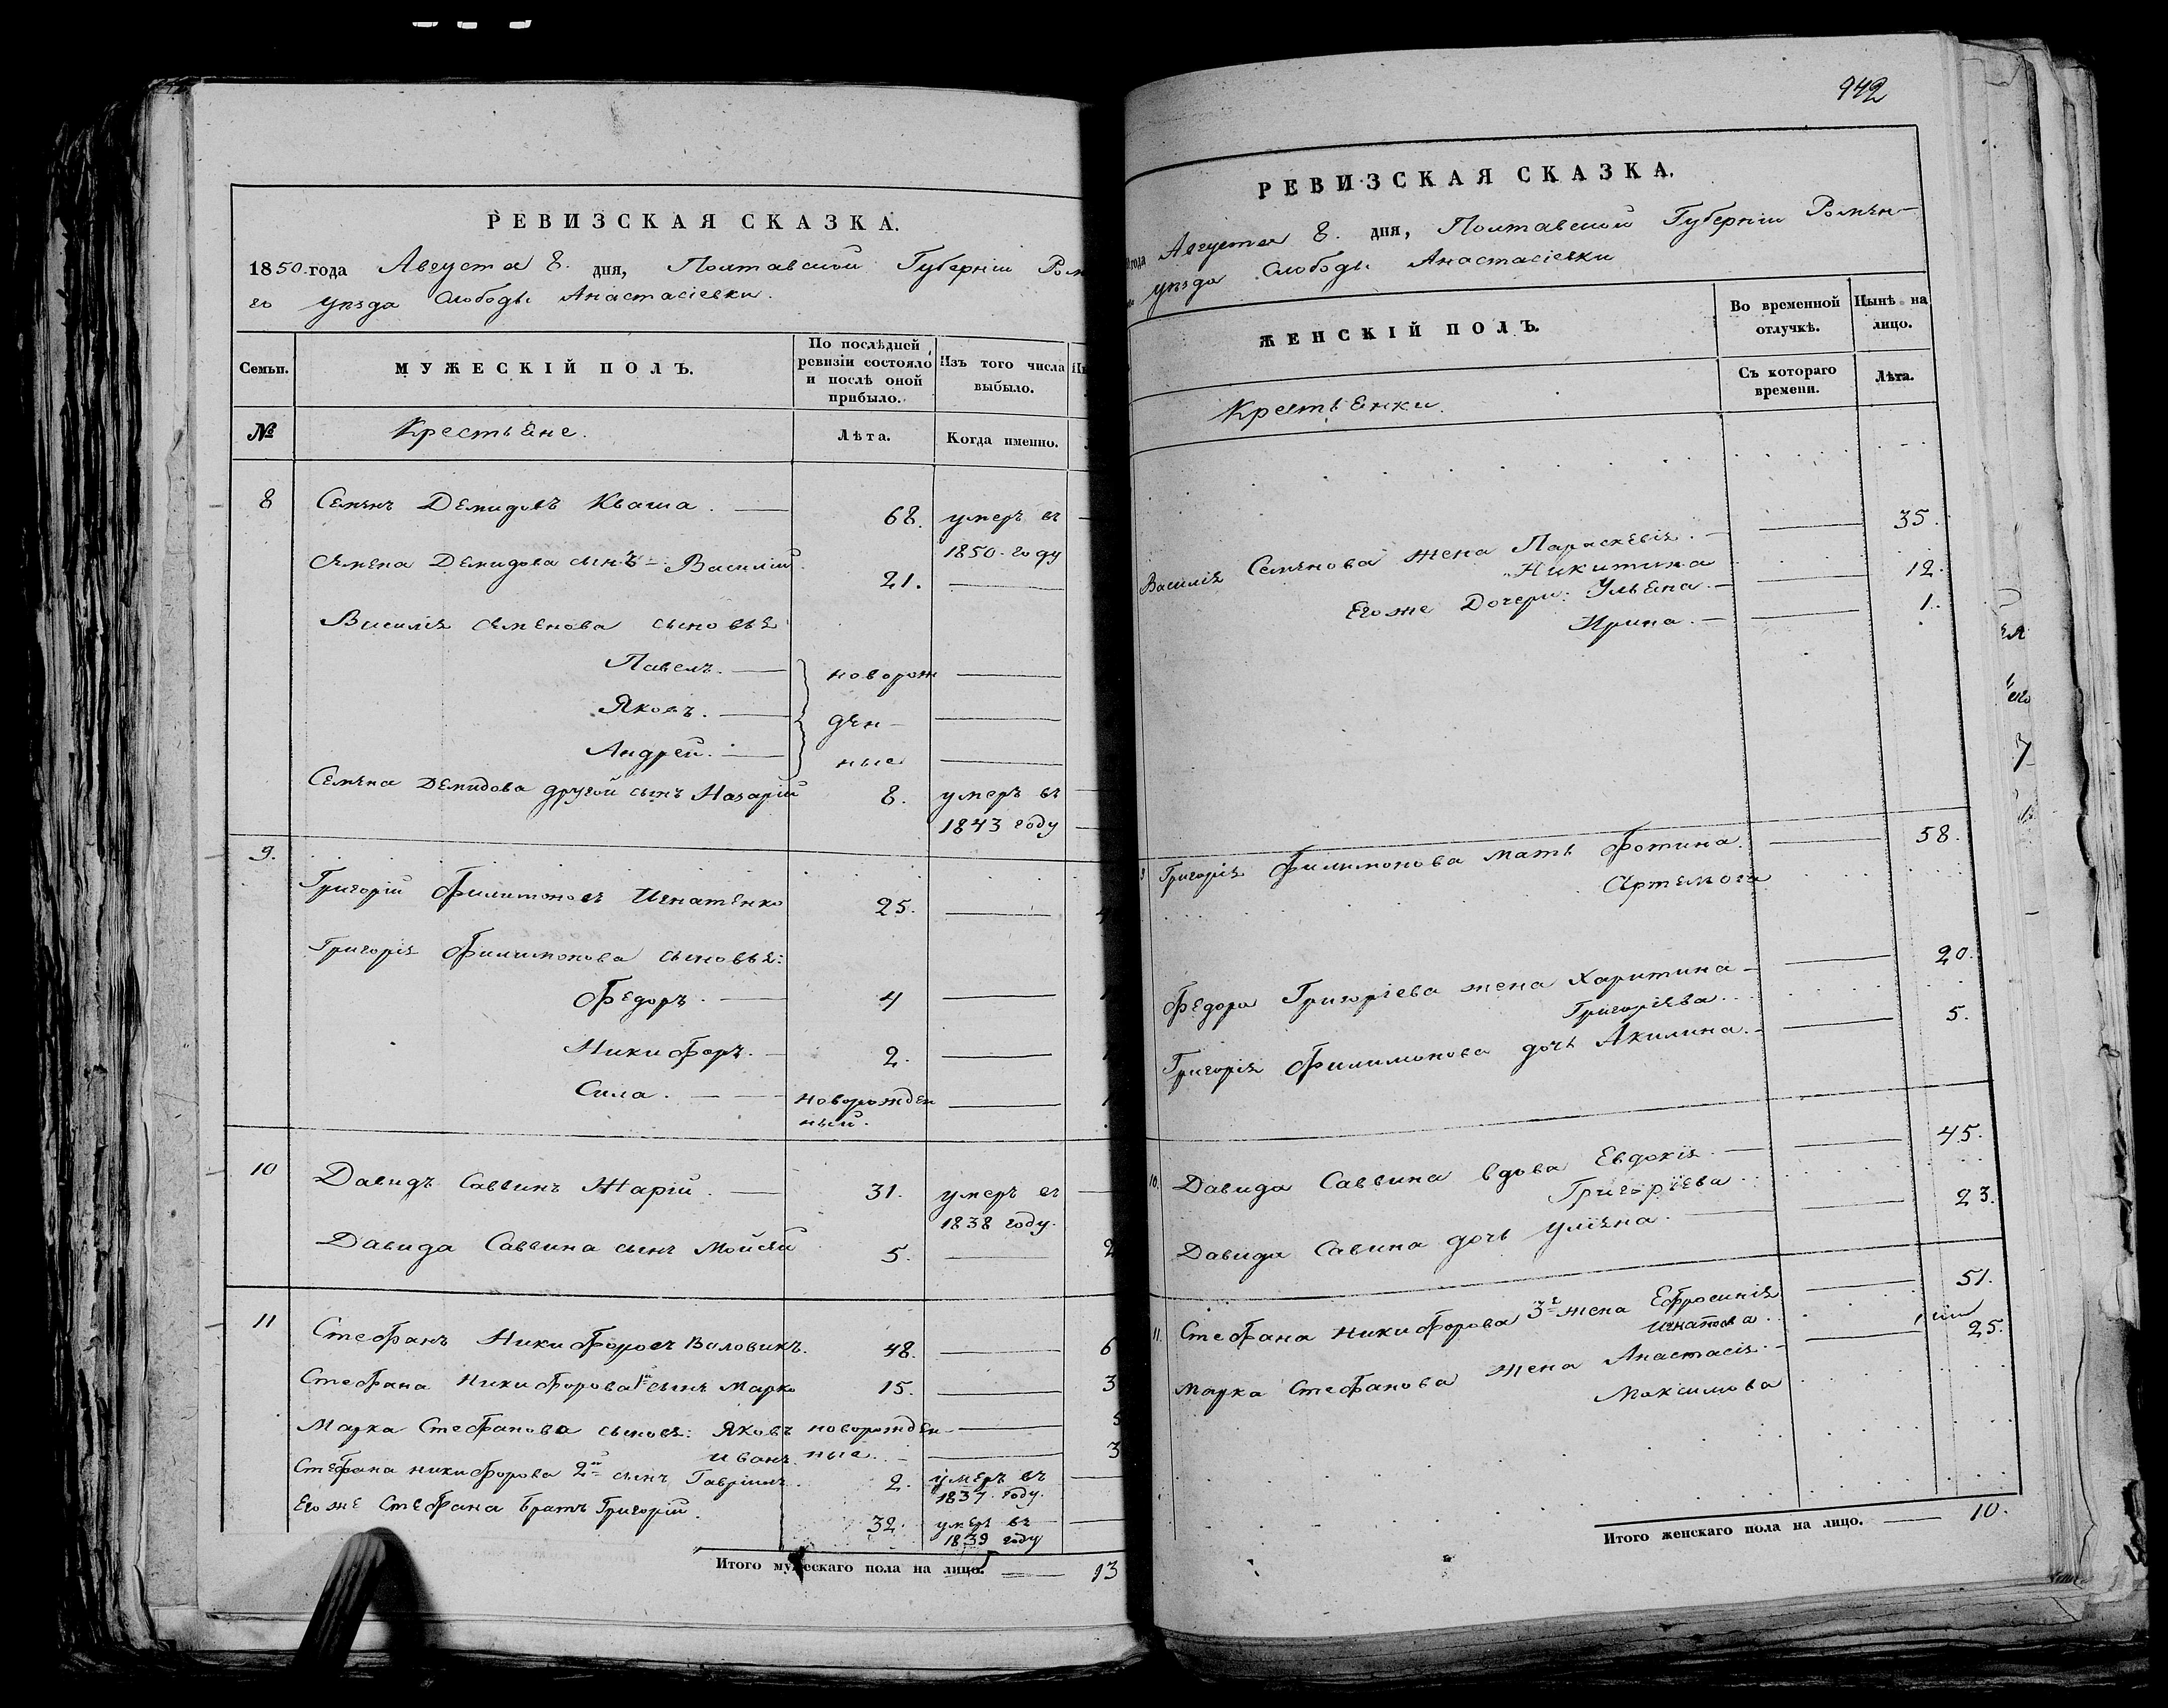 РЕВИЗСКАЯ СКАЗКА.
1850 года Августа 8. дня, Полтавской Губерніи Ром
го уѣзда Слободы Анастасіевки.
Семьи.
МУЖЕСКІЙ ПОЛЪ.
По послѣдней
ревизіи состояло
и послѣ оной
прибыло.
Изъ того числа
выбыло.
№
Крестьяне.
Лѣта.
Когда именно.
8
Семенъ Демидовъ Кваша. 68. умеръ въ
1850. году
Семена Демидова сынъ Василій 21.
Василія Семенова сыновья
Павелъ. новорож
Яковъ. ден
Андрей. ные
Семена Демидова другой сынъ Назарій 8. умеръ въ
1843 году
9.
Григорій Филимоновъ Игнатенко 25. 4
Григорія Филимонова сыновья:
Федоръ. 4
Никифоръ. 2. 1
Сила. новорожден 1
ный.
10 Давидъ Саввинъ Жарій. 31. умеръ въ
1838 году.
Давида Саввина сынъ Мойсей 5. 2
11 Стефанъ Никифоровъ Воловикъ. 48. 6
Стефана Никифорова 1й сынъ Марко 15. 3
Марка Стефанова сыновья: Яковъ новорожден 5
Иванъ ные. 3
Стефана Никифорова 2й сынъ Гавріилъ. 2. умеръ въ
1837. году.
Его же Стефана братъ Григорій. 32. умеръ въ
1839 году
Итого мужескаго пола на лицо. 13
942
РЕВИЗСКАЯ СКАЗКА.
года Августа 8. дня, Полтавской Губерніи Ромен-
уѣзда Слободы Анастасіевки
ЖЕНСКІЙ ПОЛЪ.
Во временной
отлучкѣ.
Нынѣ на
лицо.
Съ котораго
времени.
Лѣта.
Крестьянки.
Василія Семенова жена Параскевія. 35.
Никитина
Его же Дочери: Ульяна. 12.
Ирина. 1.
Григорія Филимонова мать Фотина. 58.
Артемова
Федора Григоріева жена Харитина 20.
Григоріева.
Григорія Филимонова дочь Акилина. 5.
10. Давида Саввина вдова Евдокія. 45.
Григоріева
Давида Савина дочь Уліяна. 23.
11. Стефана Никифорова 3я жена Ефросинія 51.
Игнатова.
Марка Стефанова жена Анастасія. 25.
Максимова
Итого женскаго пола на лицо. 10.